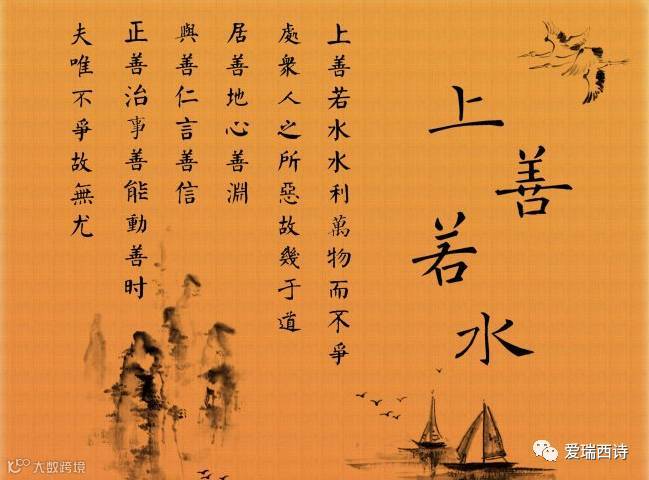 上善若水
上善若水水利萬物而不爭
處衆人之所惡故幾于道
居善地心善淵
與善仁言善信
正善治事善能動善时
夫唯不爭故無尤
爱瑞西诗
大数跨境